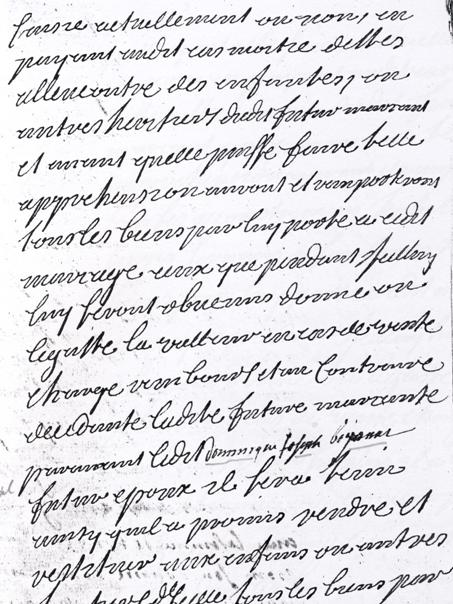 faisre actuellement ou non, en
payant audit cas moitie debtes
allencontre des enfantes, ou
autres heritiers dudit futur mourant
et avant quelle puisse faire telle
apprehension auront et remporteront
tous les biens par luy porté a cedit
mariage ceux que pendant Iceluy
luy seront obvenus donné ou
legatté la valleur en cas de vente
charge rembours et au Contraire
decedante ladite future mourante
paravant ledit Dominique Joseph
futur epoux il sera tenu
ainsy quil a promis rendre et
restituer aux enfans ou autres
tous les biens par